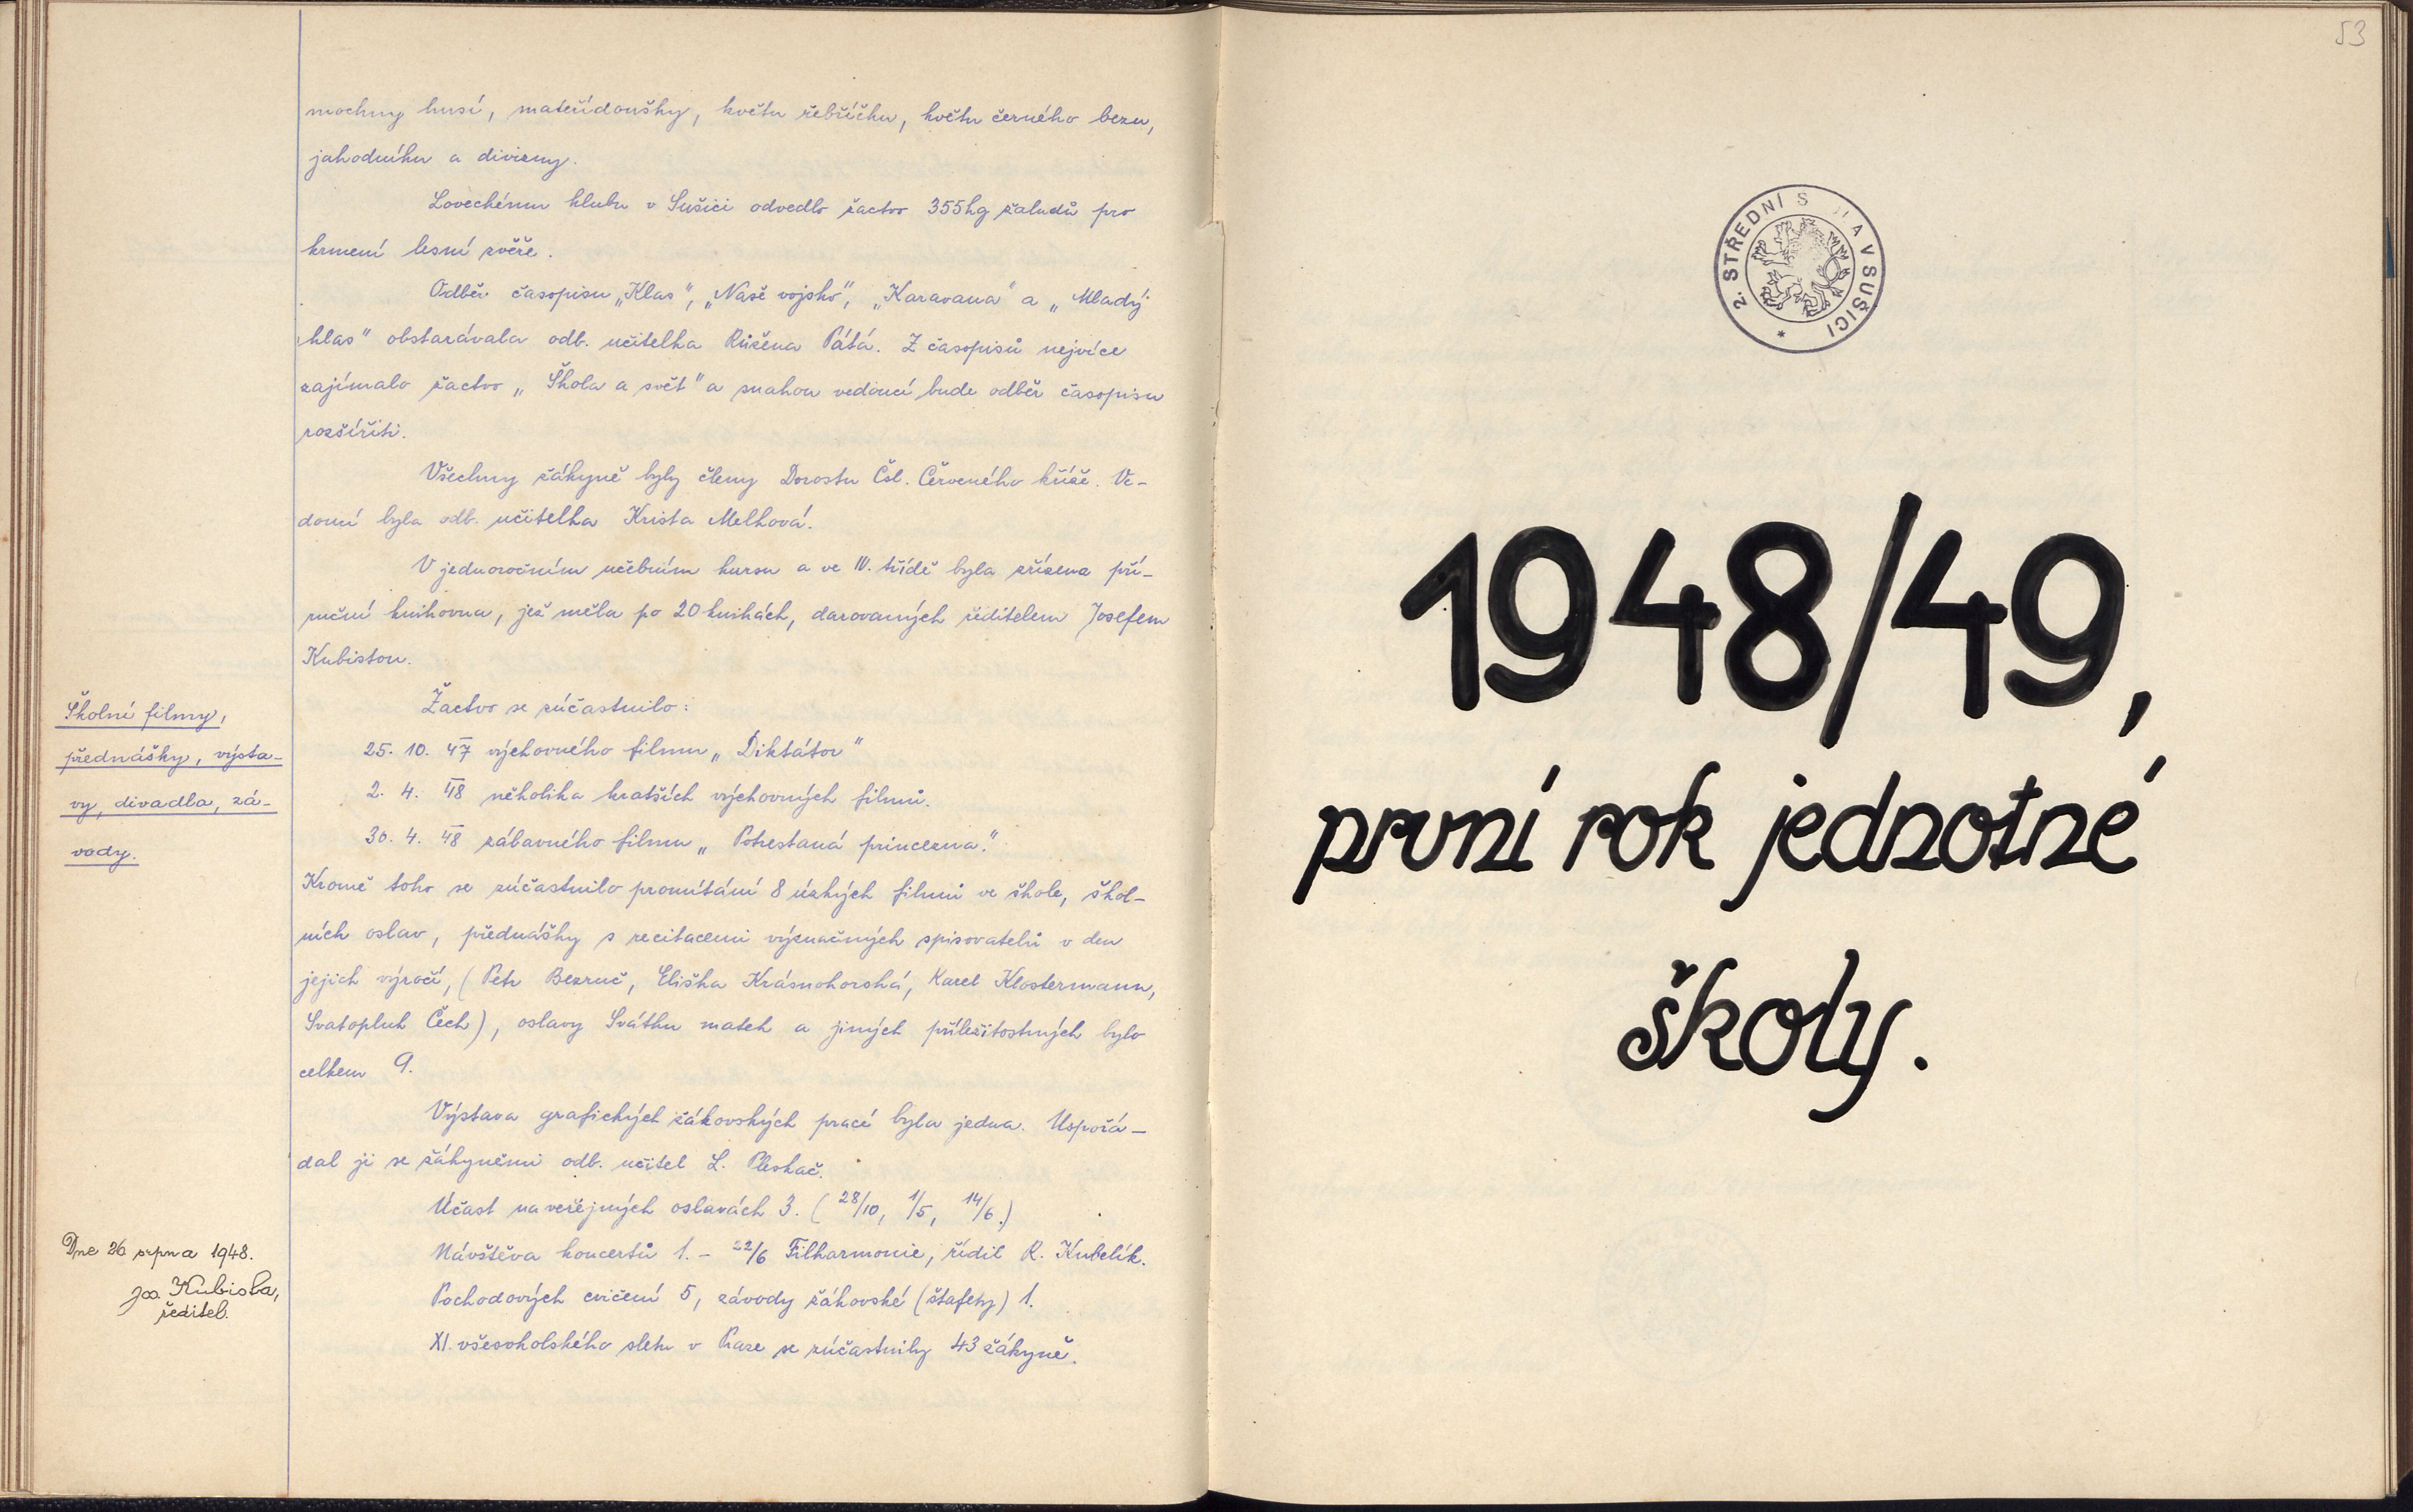 mochny husí, mateřídoušky, květu řebříčku, květu černého bezu,
jahodníku a divizny.
Loveckému klubu v Sušici odvedlo žactvo 355kg žaludů pro
krmení lesní zvěře.
Odběr časopisu „Klas", „Naše vojsko", „Karavana" a „Mladý
hlas" obstarávala odb. učitelka Růžena Pátá. Z časopisů nejvíce
zajímalo žactvo „Škola a svět" a snahou vedoucí bude odběr časopisu
rozšířiti.
Všechny žákyně byly členy Dorostu Čsl. Červeného kříže. Ve-
doucí byla odb. učitelka Krista Melková.
V jednoročním učebním kursu a ve IV. třídě byla zřízena pří-
ruční knihovna, jež měla po 20 knihách, darovaných ředitelem Josefem
Kubistou.
Školní filmy,
přednášky, výsta-
vy, divadla, zá-
vody.
Žactvo se zúčastnilo:
25. 10. 47 výchovného filmu „Diktátor"
2. 4. 48 několika kratších výchovných filmů.
30. 4. 48 zábavného filmu „Potrestaná princezna."
Kromě toho se zúčastnilo promítání 8 úzkých filmů ve škole, škol-
ních oslav, přednášky s recitacemi význačných spisovatelů v den
jejich výročí, (Petr Bezruč, Eliška Krásnohorská, Karel Klostermann,
Svatopluk Čech), oslavy Svátku matek a jiných příležitostných bylo
celkem 9.
Výstava grafických žákovských prací byla jedna. Uspořá-
dal ji se žákyněmi odb. učitel L. Pleskač.
Účast na veřejných oslavách 3. (28/10, 1/5, 14/6.)
Návštěva koncertů 1. - 22/6 Filharmonie, řídil R. Kubelík.
Pochodových cvičení 5, závody žákovské (štafety) 1.
XI. všesokolského sletu v Praze se zúčastnily 43 žákyně.
Dne 26 srpna 1948.
Jos. Kubista,
ředitel.
53
2. STŘEDNÍ Š A V SUŠICI *
1948/49,
první rok jednotné
školy.